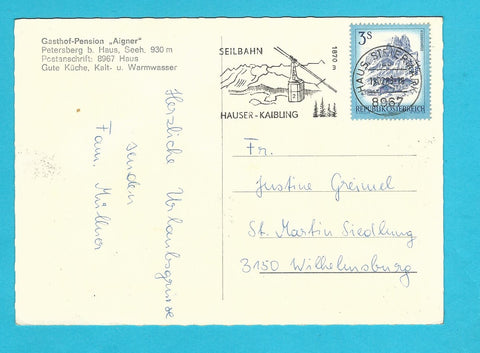 Gasthof-Pension „Aigner"
Petersberg b. Haus, Seeh. 930 m
Postanschrift: 8967 Haus
Gute Küche, Kalt- u. Warmwasser
SEILBAHN
1870 m
HAUSER-KAIBLING
3S
REPUBLIK ÖSTERREICH
8967
Herzliche Urlaubsgrüsse
senden
Fam. Müllner
Fr.
Justine Greimel
St. Martin Siedlung
3150 Wilhelmsburg